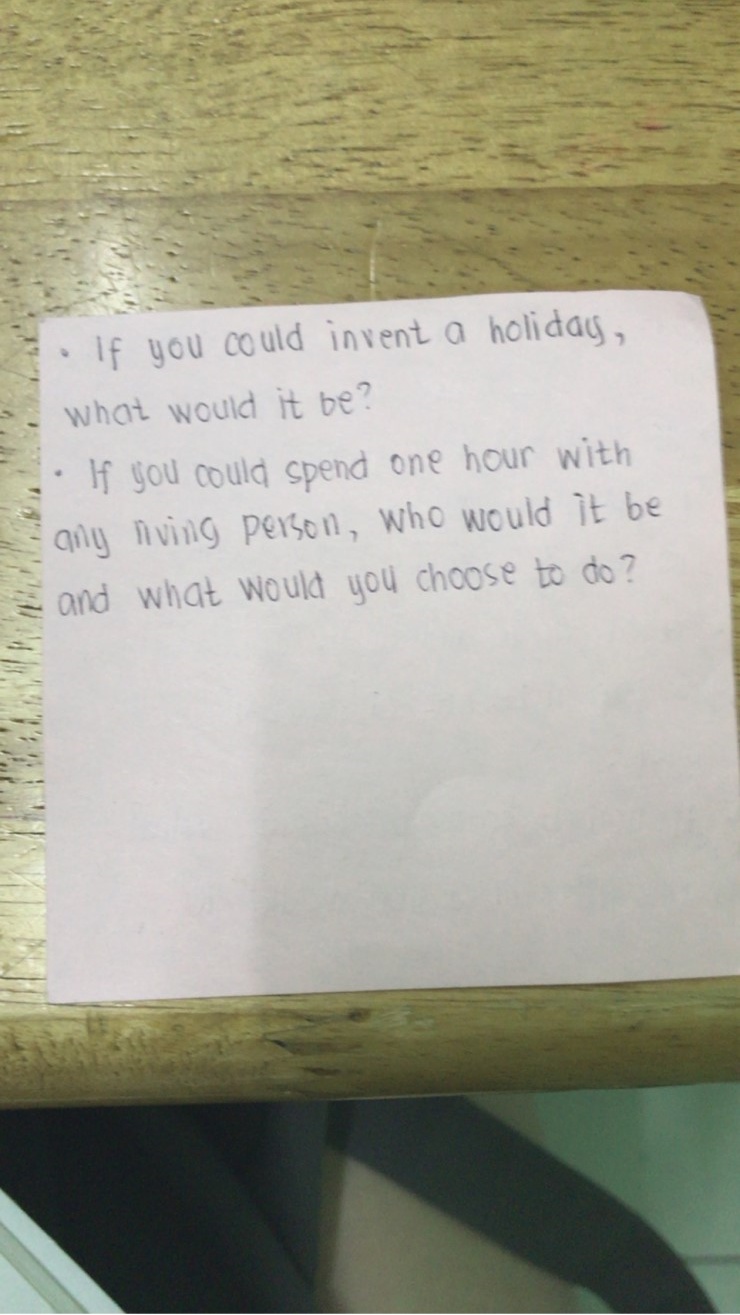 · If you could invent a holiday,
what would it be?
· If you could spend one hour with
any living person, who would it be
and what would you choose to do?